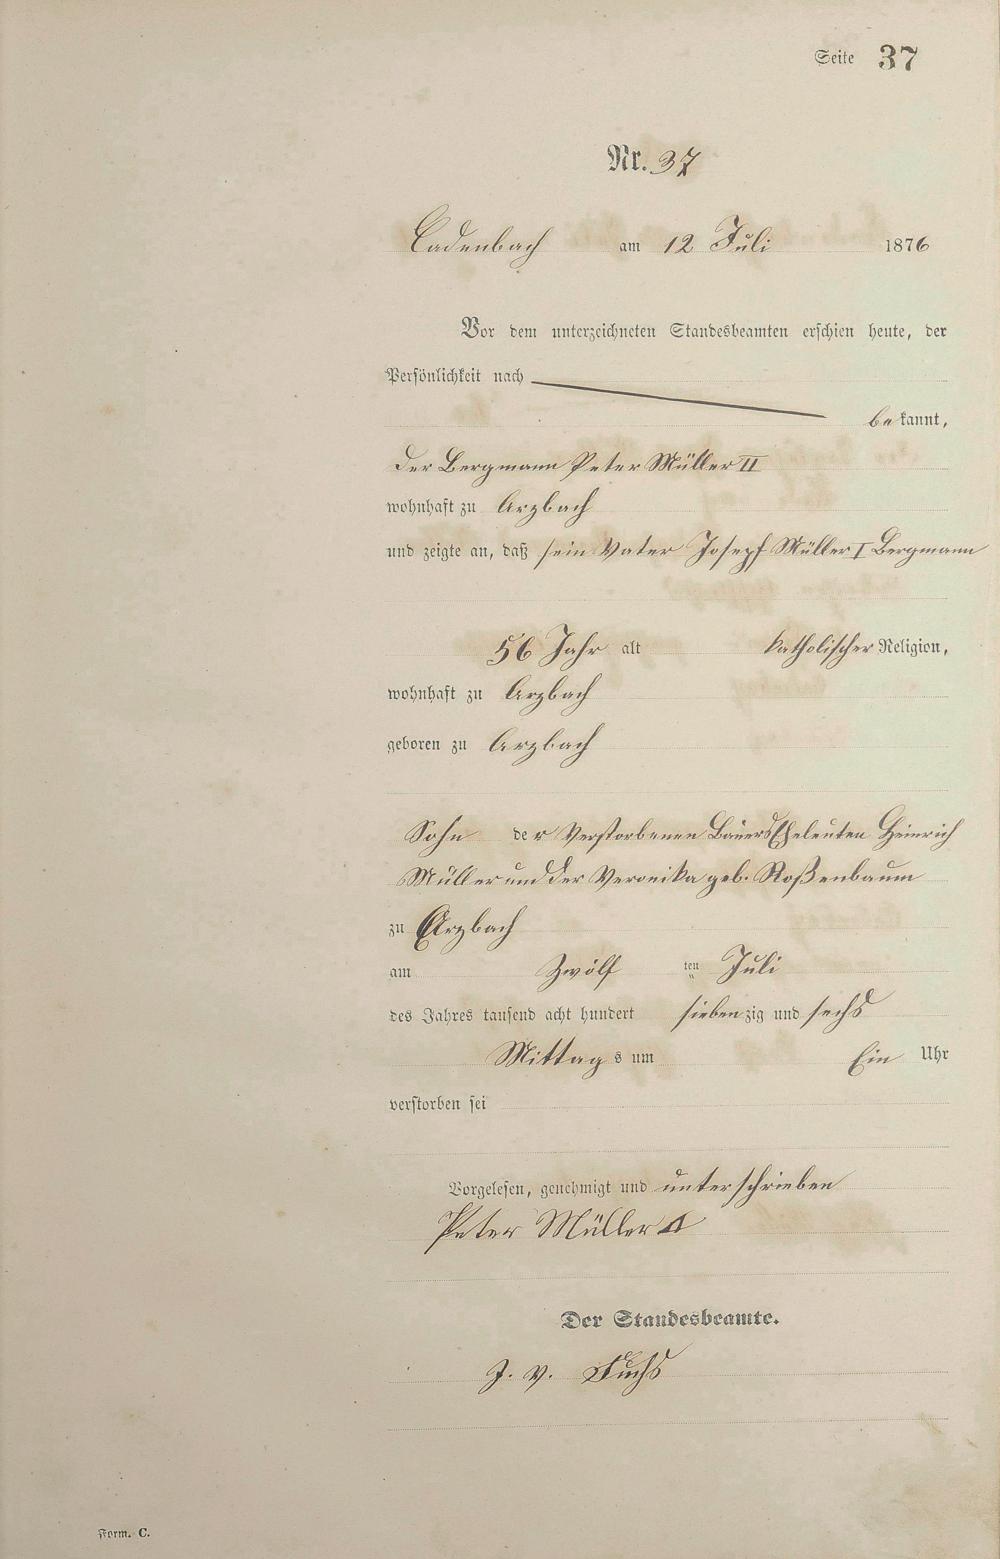 Seite 37
Nr. 37
Cadenbach am 12 Juli 1876
Vor dem unterzeichneten Standesbeamten erschien heute, der
Persönlichkeit nach
bekannt,
der Bergmann Peter Müller II
wohnhaft zu Arzbach
und zeigte an, daß sein Vater Joseph Müller I Bergmann
56 Jahr alt katholischer Religion,
wohnhaft zu Arzbach
geboren zu Arzbach
Sohn der Verstorbenen Bauers Eheleuten Heinrich
Müller und der Veronika geb. Roßenbaum
zu Arzbach
am Zwölf ten Juli
des Jahres tausend acht hundert siebenzig und sechs
Mittags um Ein Uhr
verstorben sei
Vorgelesen, genehmigt und unterschrieben
Peter Müller
Der Standesbeamte.
J. V. Fuchs
Form. C.